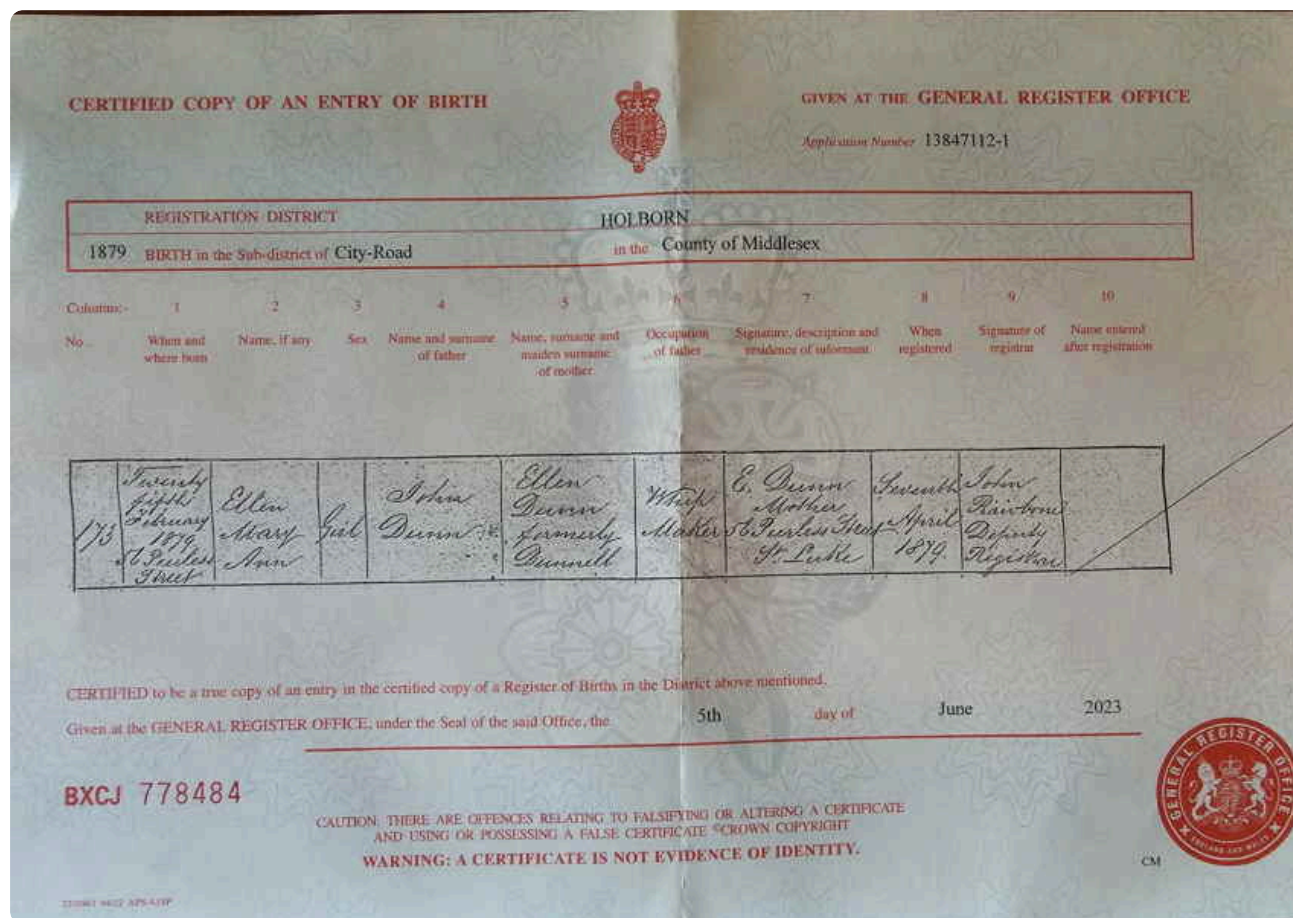 CERTIFIED COPY OF AN ENTRY OF BIRTH
GIVEN AT THE GENERAL REGISTER OFFICE
Application Number 13847112-1
REGISTRATION DISTRICT HOLBORN
1879 BIRTH in the Sub-district of City-Road in the County of Middlesex
Columns:- 1 2 3 4 5 6 7 8 9 10
No.
When and
where born
Name, if any
Sex
Name and surname
of father
Name, surname and
maiden surname
of mother
Occupation
of father
Signature, description and
residence of informant
When
registered
Signature of
registrar
Name entered
after registration
173
Twenty
fifth
February
1879
Peerless
Street
Ellen
Mary
Ann
Girl
John
Dunn
Ellen
Dunn
formerly
Dunnell
Whip
Maker
E. Dunn
Mother
Peerless Street
St Luke
Seventh
April
1879
John
Rainbone
Deputy
Registrar
CERTIFIED to be a true copy of an entry in the certified copy of a Register of Births in the District above mentioned.
Given at the GENERAL REGISTER OFFICE, under the Seal of the said Office, the 5th day of June 2023
BXCJ 778484
CAUTION: THERE ARE OFFENCES RELATING TO FALSIFYING OR ALTERING A CERTIFICATE
AND USING OR POSSESSING A FALSE CERTIFICATE ©CROWN COPYRIGHT
WARNING: A CERTIFICATE IS NOT EVIDENCE OF IDENTITY.
GENERAL REGISTER OFFICE
ENGLAND AND WALES
CM